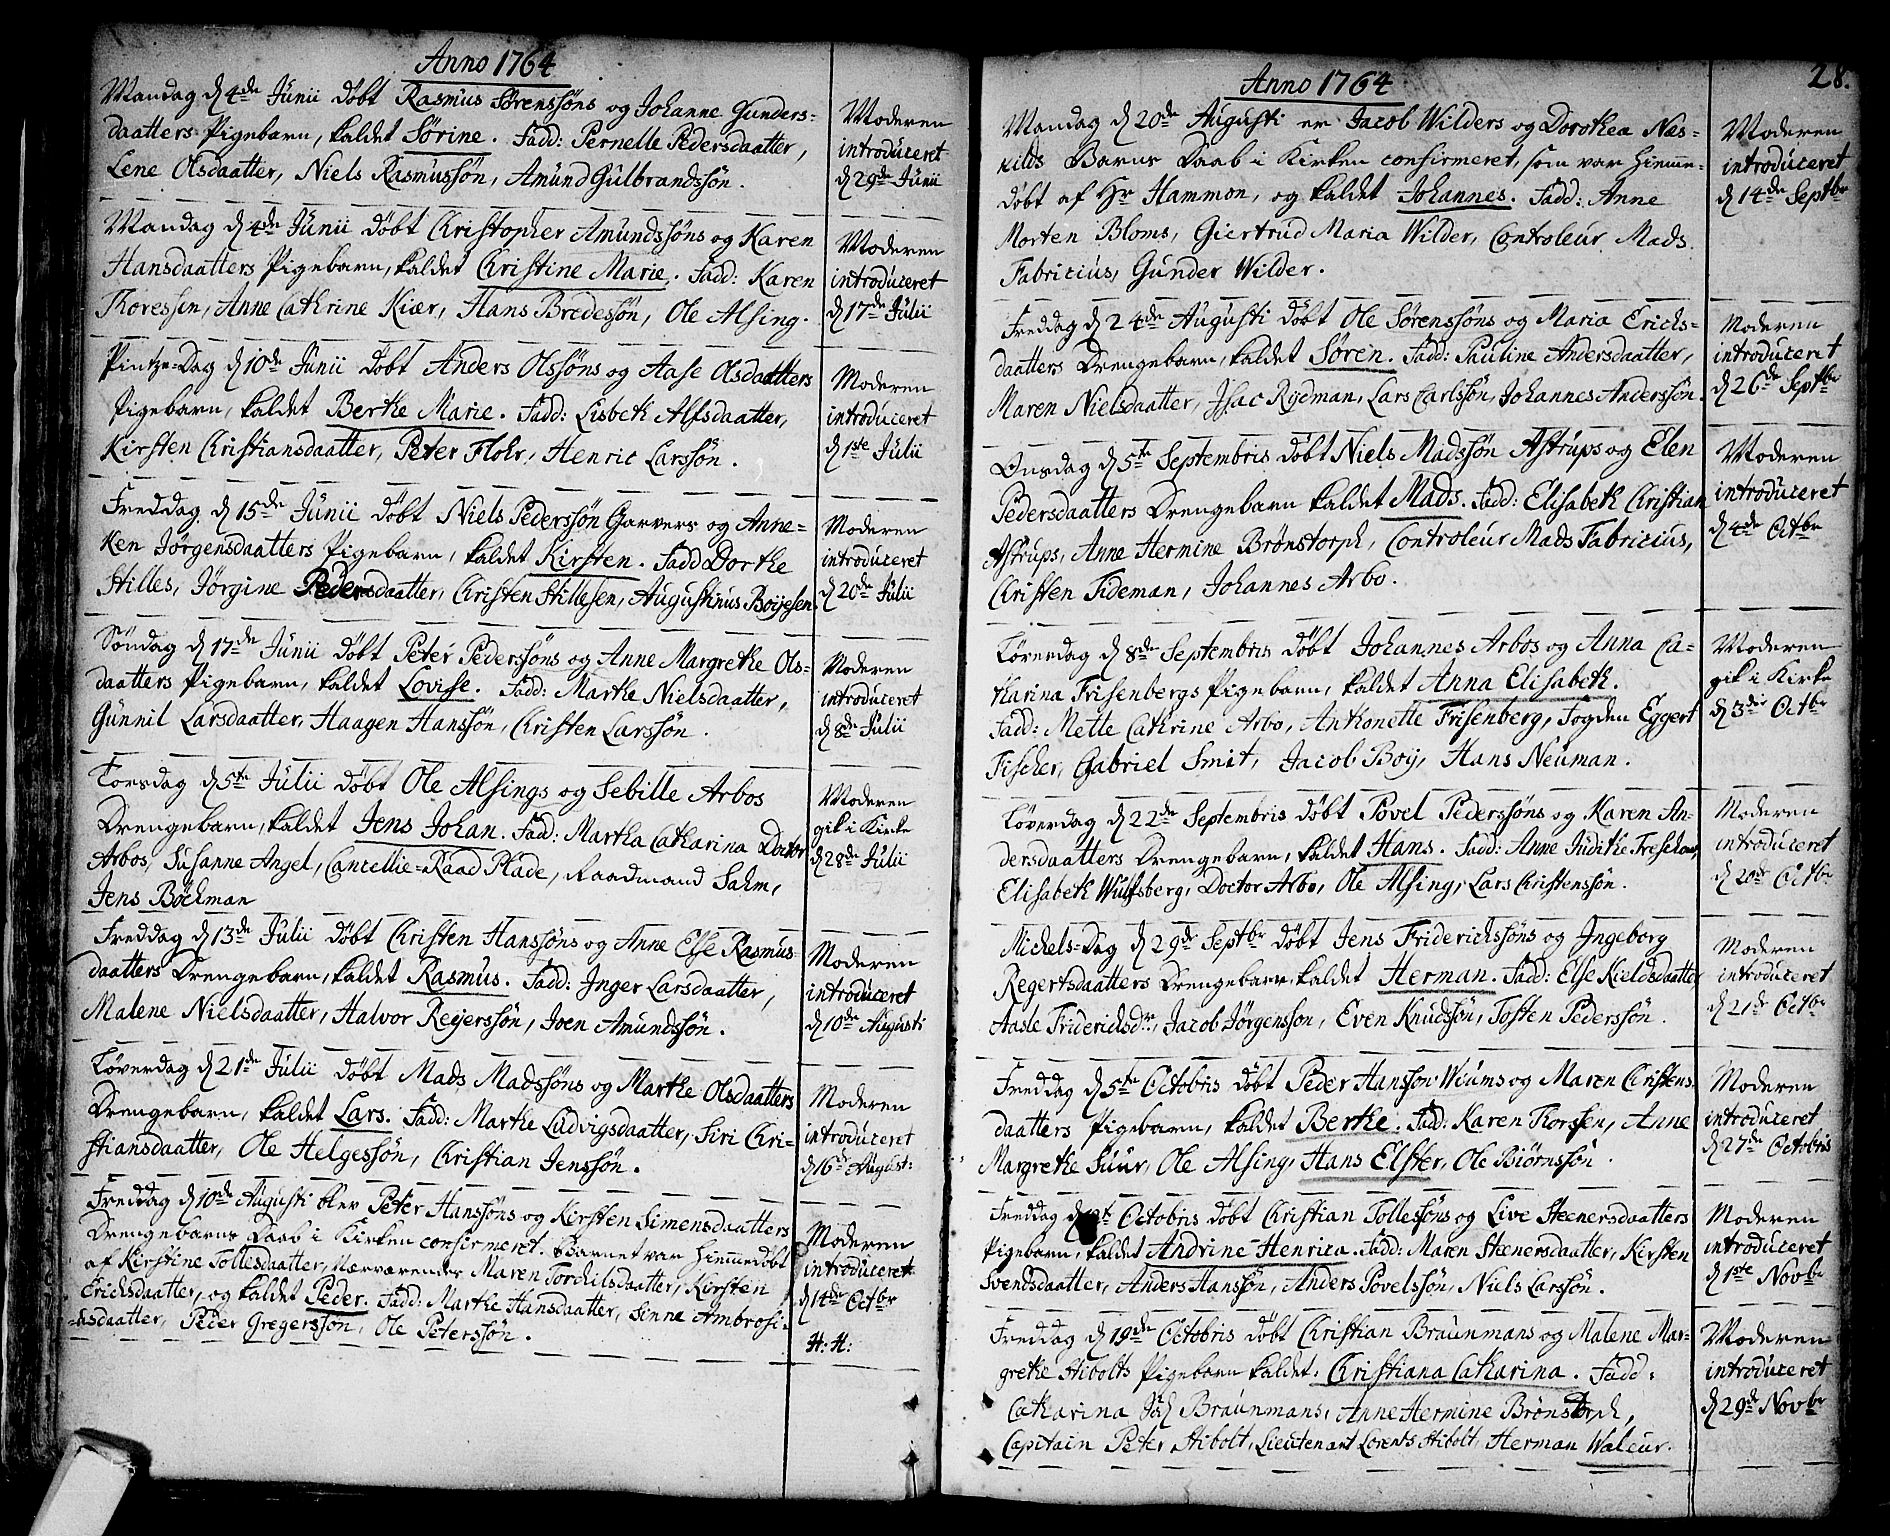 Anno 1764
Mandag d 4de Junii döbt Rasmus Sörenssöns og Johanne Gunders-
daatters Pigebarn, kaldet Sörine. Fadd: Pernelle Pedersdaatter,
Lene Olsdaatter, Niels Rasmussön, Amund Gulbrandssön.
Moderen
introduceret
d 29de Junii
Mandag d 4de Junii döbt Christopher Amundssöns og Karen
Hansdaatters Pigebarn, kaldet Christine Marie. Fadd: Karen
Thoressen, Anne Cathrine Kiær, Hans Bredesön, Ole Alsing.
Moderen
introduceret
d 17de Julii
Pintze-Dag d 10de Junii döbt Anders Olssöns og Aase Olsdaatters
Pigebarn, kaldet Berthe Marie. Fadd: Lisbeth Alfsdaatter,
Kirsten Christiansdaatter, Peter Flohr, Henric Larssön.
Moderen
introduceret
d 1ste Julii
Freddag d 15de Junii döbt Niels Pederssön Garvers og Anne-
ken Jörgensdaatters Pigebarn, kaldet Kirsten. Fadd Dorthe
Stilles, Jörgine Pedersdaatter, Christen Stillesen, Augustinus Boijesen.
Moderen
introduceret
d 20de Julii
Söndag d 17de Junii döbt Peter Pederssöns og Anne Margrethe Ols-
daatters Pigebarn, kaldet Lovise. Fadd: Marthe Nielsdaatter,
Gunnil Larsdaatter, Haagen Hanssön, Christen Larssön.
Moderen
introduceret
d 8de Julii
Torsdag d 5te Julii döbt Ole Alsings og Sebille Arbos
Drengebarn, kaldet Jens Johan. Fadd: Martha Catharina Doctor
Arbos, Susanne Angel, Cancellie-Raad Plade, Raadmand Sahm,
Jens Böckman
Moderen
gik i Kirke
d 28de Julii
Freddag d 13de Julii döbt Christen Hanssöns og Anne Else Rasmus
daatters Drengebarn, kaldet Rasmus. Fadd: Inger Larsdaatter,
Malene Nielsdaatter, Halvor Reyerssön, Joen Amundssön.
Moderen
introduceret
d 10de Augusti
Löverdag d 21de Julii döbt Mads Madssöns og Marthe Olsdaatters
Drengebarn, kaldet Lars. Fadd: Marthe Ludvigsdaatter, Siri Chri-
stiansdaatter, Ole Helgessön, Christian Jenssön.
Moderen
introduceret
d 16de August:
Freddag d 10de Augusti blev Peter Hanssöns og Kirsten Simensdaatters
Drengebarns Daab i Kirken confirmeret. Barnet var hiemmedöbt
af Kirstine Tollesdaatter, Nærværendes Maren Torchilsdaatter, Kirsten
Erichsdaatter, og kaldet Peder. Fadd: Marthe Hansdaatter, Sinne Ambrosi-
usdaatter, Peder Gregerssön, Ole Peterssön.
Moderen
introduceret
d 14de Octbr
H: H:
28.
Anno 1764
Mandag d 20de Augusti er Jacob Wilders og Dorothea Næs-
kilds Barns Daab i Kirken confirmeret, som var hiemme-
döbt af Hr Hammon, og kaldet Johannes. Fadd: Anne
Morten Bloms, Giertrud Maria Wilder, Controleur Mads
Fabricius, Gunder Wilder.
Moderen
introduceret
d 14de Septbr
Freddag d 24de Augusti döbt Ole Sörenssöns og Maria Erichs-
daatters Drengebarn, kaldet Sören. Fadd: Pauline Andersdaatter,
Maren Nielsdaatter, Isac Rydman, Lars Carlssön, Johannes Anderssön.
Moderen
introduceret
d 26de Septbr
Onsdag d 5te Septembris döbt Niels Madssön Astrups og Elen
Pedersdaatters Drengebarn kaldet Mads. Fadd: Elisabeth Christian
Astrups, Anne Hermine Brönstorph, Controleur Mads Fabricius,
Christen Tideman, Johannes Arbo.
Moderen
introduceret
d 4de Octbr
Löverdag d 8de Septembris döbt Johannes Arbos og Anna Ca-
tharina Frisenbergs Pigebarn, kaldet Anna Elisabeth.
Fadd: Mette Cathrine Arbo, Anthonette Frisenberg, Fogden Eggert
Fischer, Gabriel Smit, Jacob Boy, Hans Neuman.
Moderen
gik i Kirke
d 3die Octbr
Löverdag d 22de Septembris döbt Povel Pederssöns og Karen An-
dersdaatters Drengebarn, kaldet Hans. Fadd: Anne Judithe Treschow,
Elisabeth Wulfsberg, Doctor Arbo, Ole Alsing, Lars Christenssön.
Moderen
introduceret
d 20de Octbr
Michels-Dag d 29de Septbr döbt Jens Friderichssöns og Ingeborg
Regertsdaatters Drengebarn, kaldet Herman. Fadd: Else Kieldsdaatter
Aasle Friderichsdr, Jacob Jörgenssön, Even Knudssön, Tosten Pederssön.
Moderen
introduceret
d 21de Octbr
Freddag d 5te Octobris döbt Peder Hanssön Wiums og Maren Christens-
daatters Pigebarn, kaldet Berthe. Fadd: Karen Thorssen, Anne
Margrethe Juur, Ole Alsing, Hans Elster, Ole Biörnssön.
Moderen
introduceret
d 27de Octobris
Freddag d Octobris döbt Christian Tollessöns og Live Steenersdaatters
Pigebarn, kaldet Andrine Henrica. Fadd: Maren Steenersdaatter, Kirsten
Svendsdaatter, Anders Hanssön, Anders Povelssön, Niels Larssön.
Moderen
introduceret
d 1ste Novbr
Freddag d 19de Octobris döbt Christian Braunmans og Malene Mar-
grethe Stibolts Pigebarn kaldet, Christiana Catharina. Fadd:
Catharina Joh Braunmans, Anne Hermine Brönstorph,
Capitain Peter Stibolt, Lieutenant Lorents Stibolt, Herman Waleur.
Moderen
introduceret
d 29de Novbr